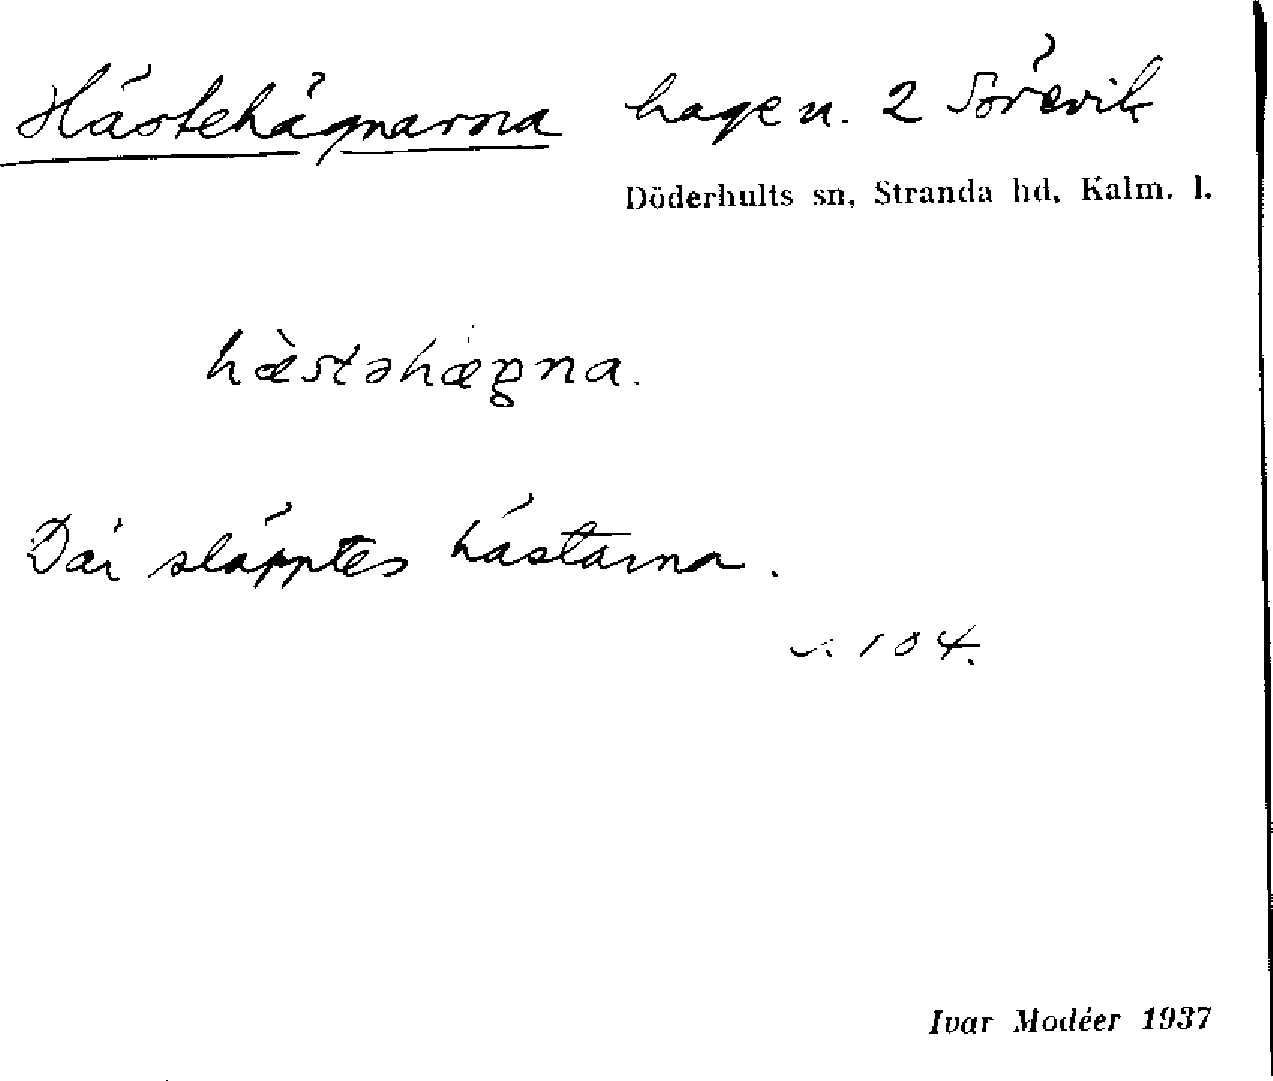 Hästehägnarna hage n. 2 Sörevik
Döderhults sn, Stranda hd, Kalm. l.
hæ̀stəhæŋna.
Där släpptes hästarna.
s. 104.
Ivar Modéer 1937